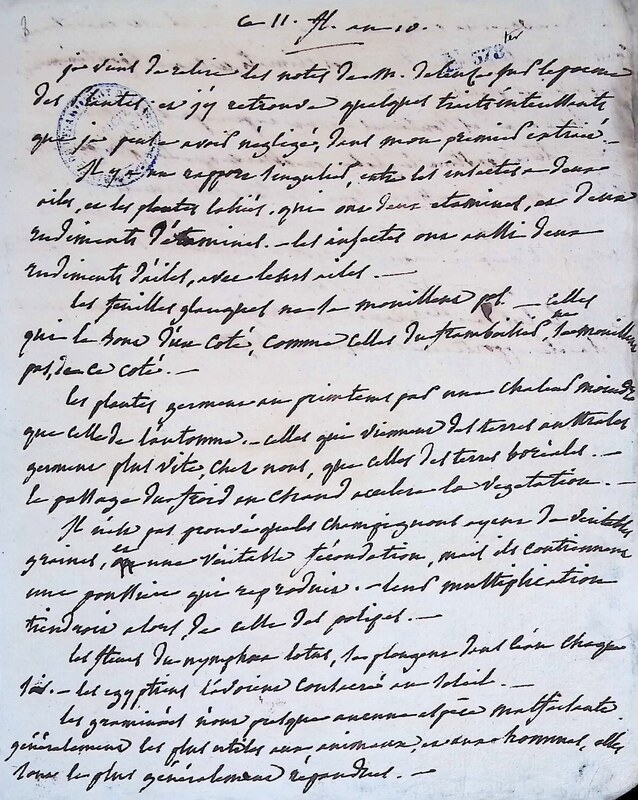 8
ce 11. fl. an 10.
378 ter
je viens de relire les notes de M. deleuze sur le poeme
des plantes, et j'y retrouve quelques traits interessants
que je peut avoir négligé, dans mon premier extrait.
Il y a un rapport singulier, entre les insectes a deux
ailes, et les plantes labiés, qui ont deux etamines, et deux
rudiments d'étamines. – les insectes ont aussi deux
rudiments d'ailes, avec leurs ailes. –
les feuilles glauques ne se mouillent pas. – celles
qui le sont d'un coté, comme celles du framboisier, ne se mouillent
pas, de ce coté. –
les plantes germent au printems par une chaleur moindre
que celle de l'automne. – celles qui viennent des terres australes
germent plus vite, chez nous, que celles des terres boréales. –
le passage du froid au chaud accelere la vegetation. –
Il n'est pas prouvé que les champignons ayent de veritables
graines, et une véritable fécondation, mais ils contiennent
une poussiere qui reproduit. – leur multiplication
tiendroit alors de celle des polipes. –
les fleurs du nymphea lotus, se plongent dans l'eau chaque
soir. – les egyptiens l'avoient consacré au soleil. –
les graminées n'ont presque aucune espèce malfaisante
généralement les plus utiles aux animaux, et aux hommes, elles
sont le plus généralement répandues. –